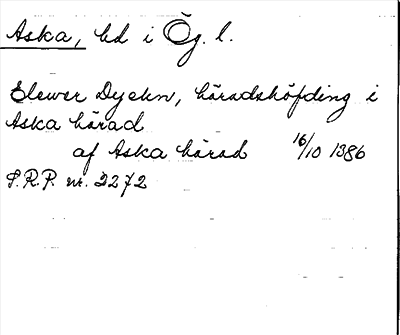 Aska, hd i Ög. l.
Elewer Dyekn, häradshöfding i
Aska härad
af Aska härad 16/10 1386
S.R.P. nr. 2272